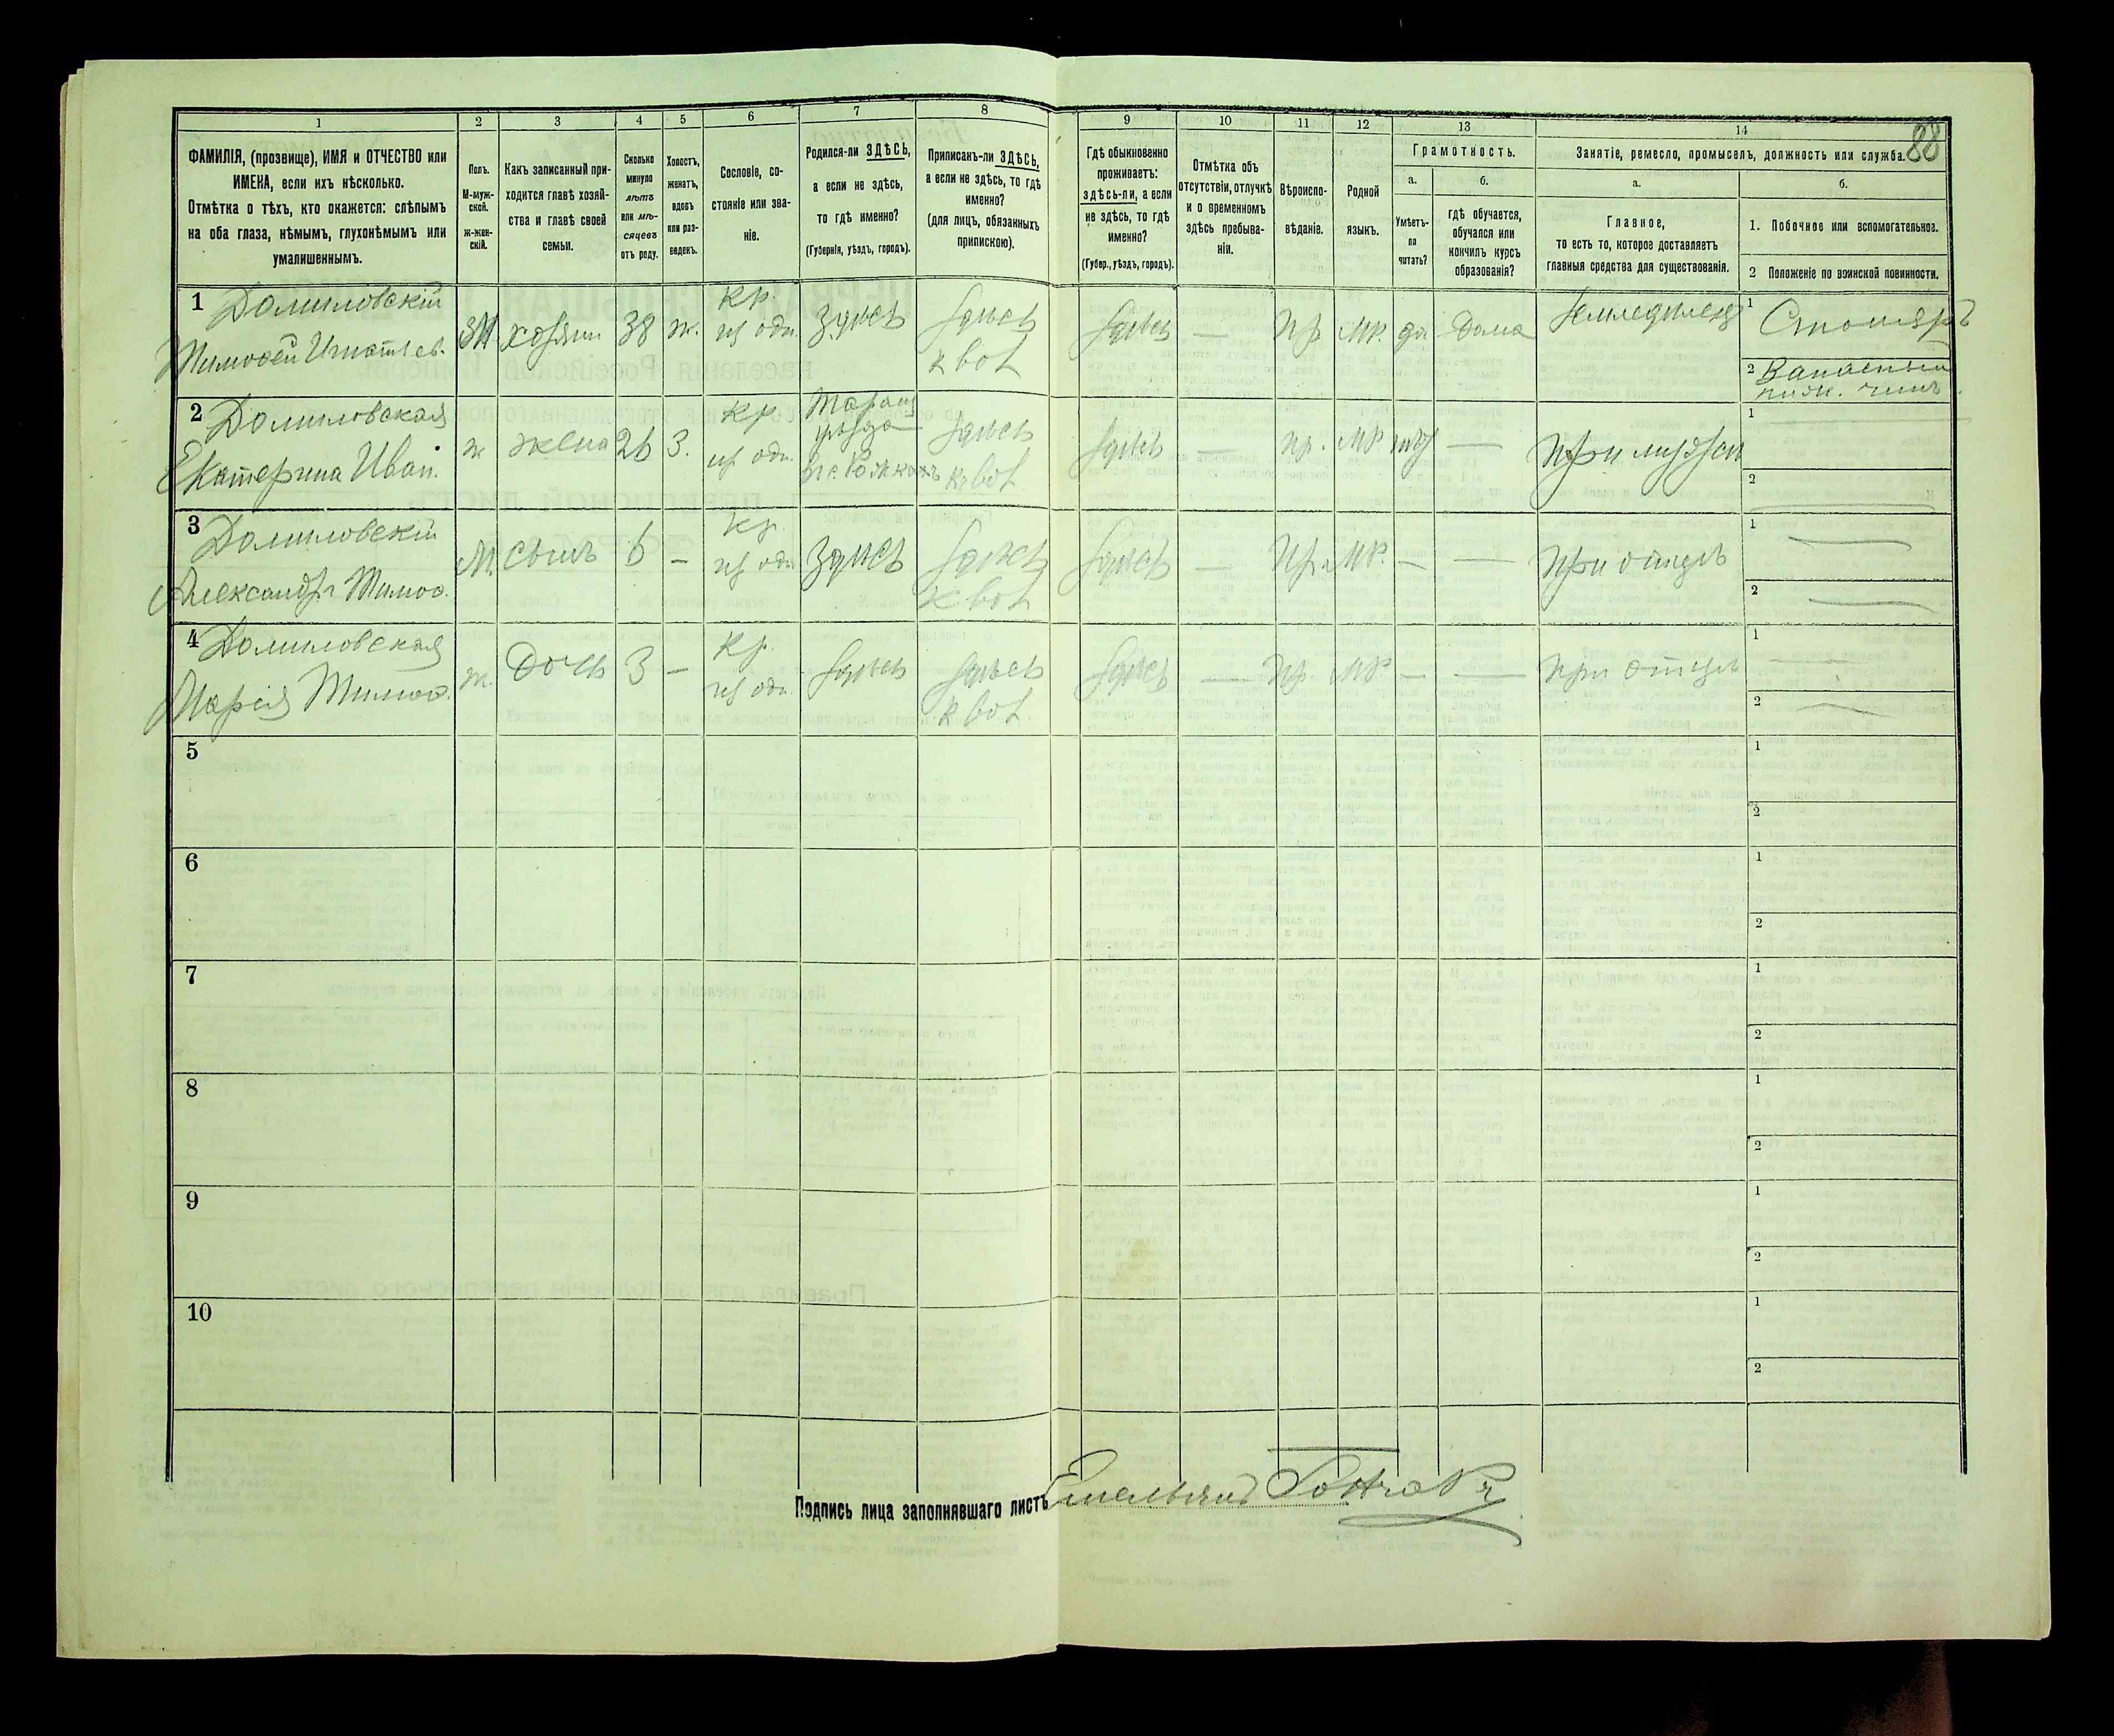 88
1 2 3 4 5 6 7 8 9 10 11 12 13 14
ФАМИЛІЯ, (прозвище), ИМЯ и ОТЧЕСТВО или
ИМЕНА, если ихъ нѣсколько.
Отмѣтка о тѣхъ, кто окажется: слѣпымъ
на оба глаза, нѣмымъ, глухонѣмымъ или
умалишеннымъ.
Полъ.
М-муж-
ской.
ж-жен-
скій.
Какъ записанный при-
ходится главѣ хозяй-
ства и главѣ своей
семьи.
Сколько
минуло
лѣтъ
или мѣ-
сяцевъ
отъ роду.
Холостъ,
женатъ,
вдовъ
или раз-
веденъ.
Сословіе, со-
стояніе или зва-
ніе.
Родился-ли ЗДѢСЬ,
а если не здѣсь,
то гдѣ именно?
(Губернія, уѣздъ, городъ).
Приписанъ-ли ЗДѢСЬ,
а если не здѣсь, то гдѣ
именно?
(для лицъ, обязанныхъ
припискою).
Гдѣ обыкновенно
проживаетъ:
здѣсь-ли, а если
не здѣсь, то гдѣ
именно?
(Губер., уѣздъ, городъ).
Отмѣтка объ
отсутствіи, отлучкѣ
и о временномъ
здѣсь пребыва-
ніи.
Вѣроиспо-
вѣданіе.
Родной
языкъ.
Грамотность.
а.
Умѣетъ-
ли
читать?
б.
гдѣ обучается,
обучался или
кончилъ курсъ
образованія?
Занятіе, ремесло, промыселъ, должность или служба.
а.
Главное,
то есть то, которое доставляетъ
главныя средства для существованія.
б.
1. Побочное или вспомогательное.
2 Положеніе по воинской повинности.
1 Долиловскій
Тимофей Игнатьев.
М хозяин 38 ж.
Кр.
из одн.
Здѣсь
Здѣсь
Здѣсь — Пр. МР. да Дома
Земледѣлец
1 Столяръ
2 Запасный
нижн. чинъ
2 Долиловская
Екатерина Иван.
ж жена 26 З.
Кр
из одн.
уѣзда
Здѣсь
Здѣсь — пр. МР —
При мужѣ
1
2
3 Долиловскій
Александръ Тимоф.
М. сынъ 6 –
Кр.
из одн
Здѣсь
Здѣсь
Здѣсь — Пр. МР. — —
При отцѣ
1
2
4 Долиловская
Марія Тимоф.
ж. дочь 3 –
Кр.
из одн.
Здѣсь
Здѣсь
Здѣсь — Пр МР — —
При отцѣ
1
2
5
1
2
6
1
2
7
1
2
8
1
2
9
1
2
10
1
2
Подпись лица заполнявшаго листъ Емельянъ